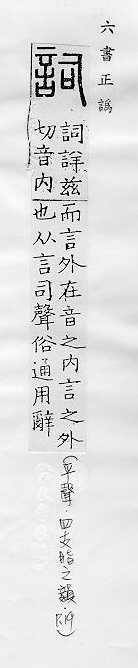 六書正譌
詞
詞詳茲
切音内
而言外在音之内言之外
也从言司聲俗通用辭
(平聲·四支脂之韻·P.19)